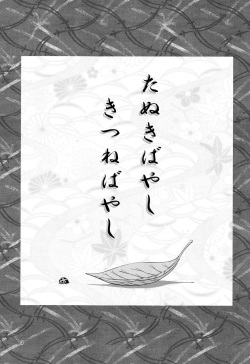 たぬきばやし
きつねばやし